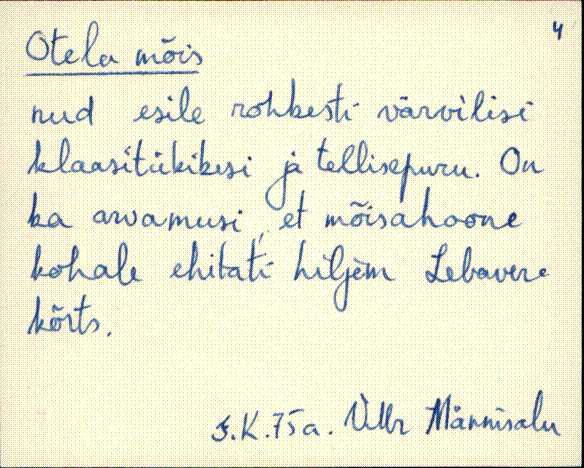 4
Otela mõis
nud esile rohkesti värvilisi
klaasitükikesi ja tellisepuru. On
ka arvamusi, et mõisahoone
kohale ehitati hiljem Lebavere
kõrts.
J.K. 75 a. Üllar Männisalu